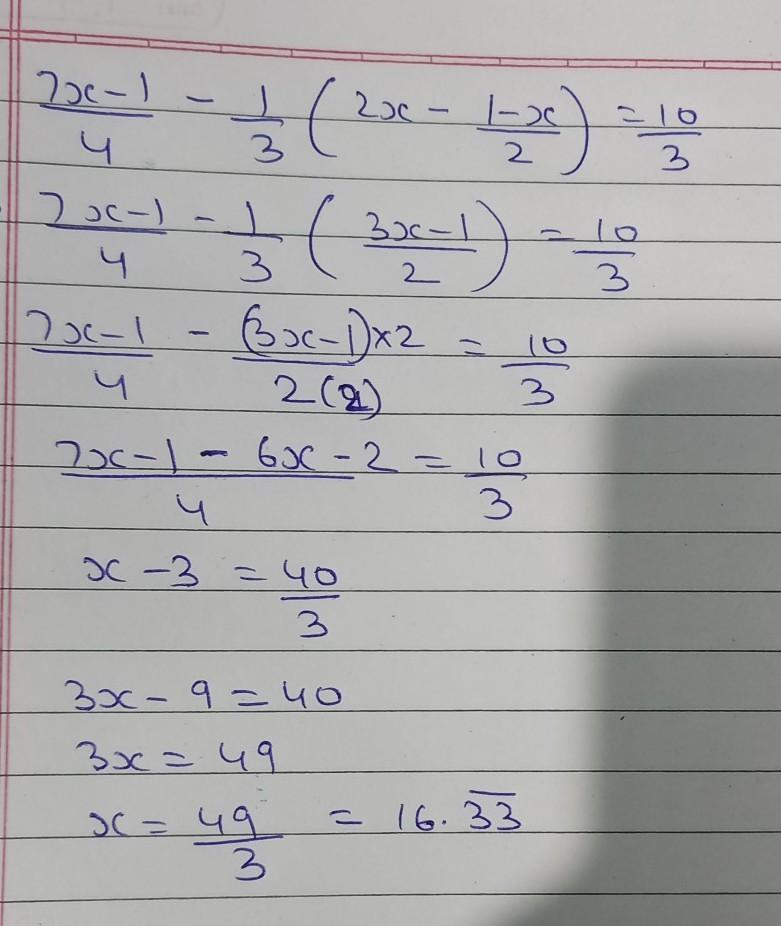 (7x-1)/4 - 1/3 (2x - (1-x)/2) = 10/3
(7x-1)/4 - 1/3 ((3x-1)/2) = 10/3
(7x-1)/4 - (3x-1)×2/2(2) = 10/3
(7x-1 - 6x-2)/4 = 10/3
x-3 = 40/3
3x-9 = 40
3x = 49
x = 49/3 = 16.3̅3̅